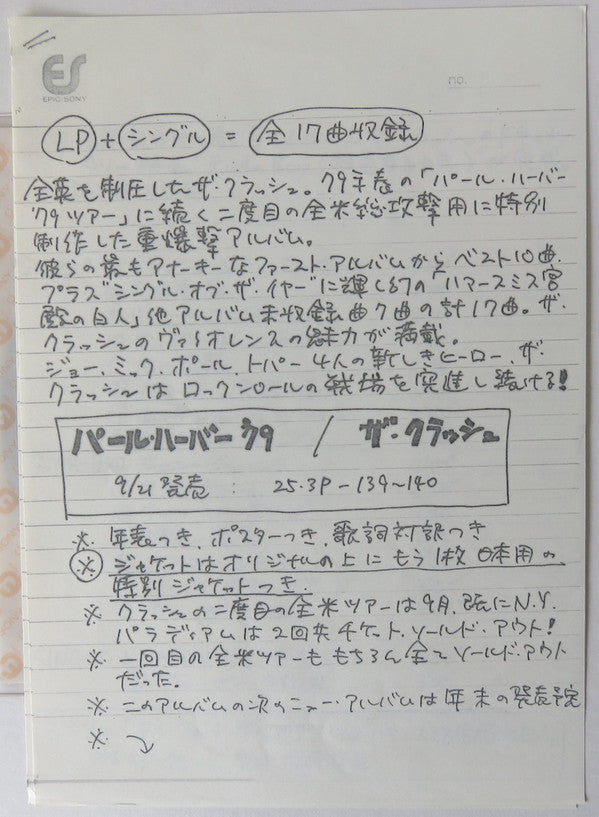 ES
EPIC SONY
no.
LP + シングル = 全17曲収録
全英を制圧したザ・クラッシュ。79年春の「パール・ハーバー
'79ツアー」に続く二度目の全米総攻撃用に特別
制作した重爆撃アルバム。
彼らの最もアナーキーなファースト・アルバムからベスト10曲、
プラス"シングル・オブ・ザ・イヤー"に輝く「ハマースミス宮
殿の白人」他アルバム未収録曲7曲の計17曲。ザ・
クラッシュのヴァイオレンスの魅力が満載。
ジョー、ミック、ポール、トパー4人の新しきヒーロー、ザ・
クラッシュはロックンロールの戦場を突進し続ける!
パール・ハーバー '79 / ザ・クラッシュ
9/21 発売 : 25・3P-139~140
※ 年表つき、ポスターつき、歌詞対訳つき
※ ジャケットはオリジナルの上にもう1枚日本用の、
特別ジャケットつき.
※ クラッシュの二度目の全米ツアーは9月、既にN.Y.
パラディアムは2回共チケット、ソールド・アウト!
※ 一回目の全米ツアーももちろん全てソールド・アウト
だった.
※ このアルバムの次のニュー・アルバムは年末の発売予定
※